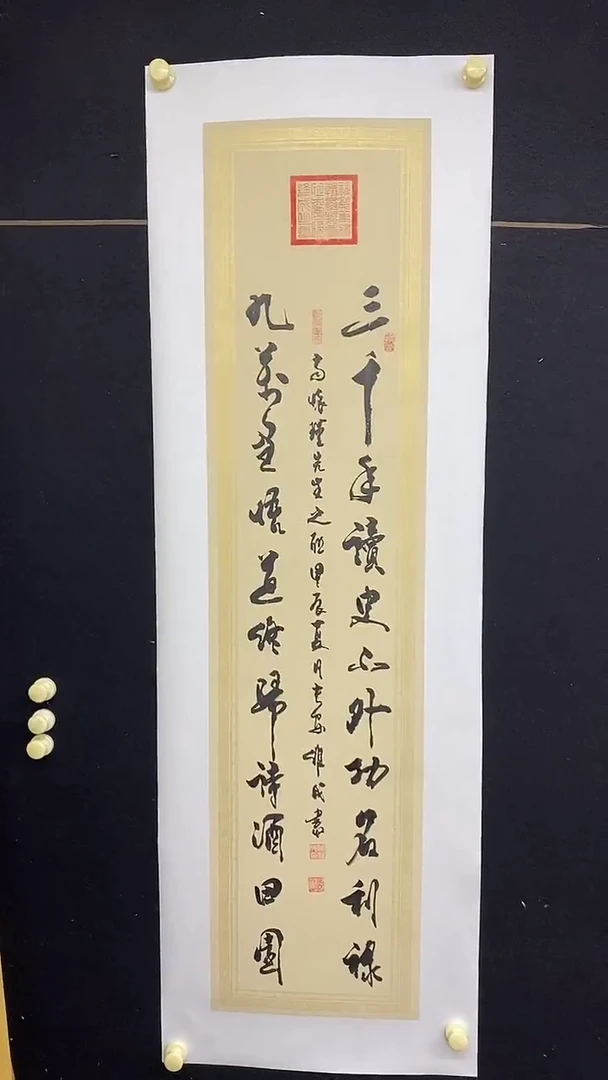 三千年讀史不外功名利祿
南懷瑾先生之联甲辰夏月長安成書
九萬里悟道終歸詩酒田園